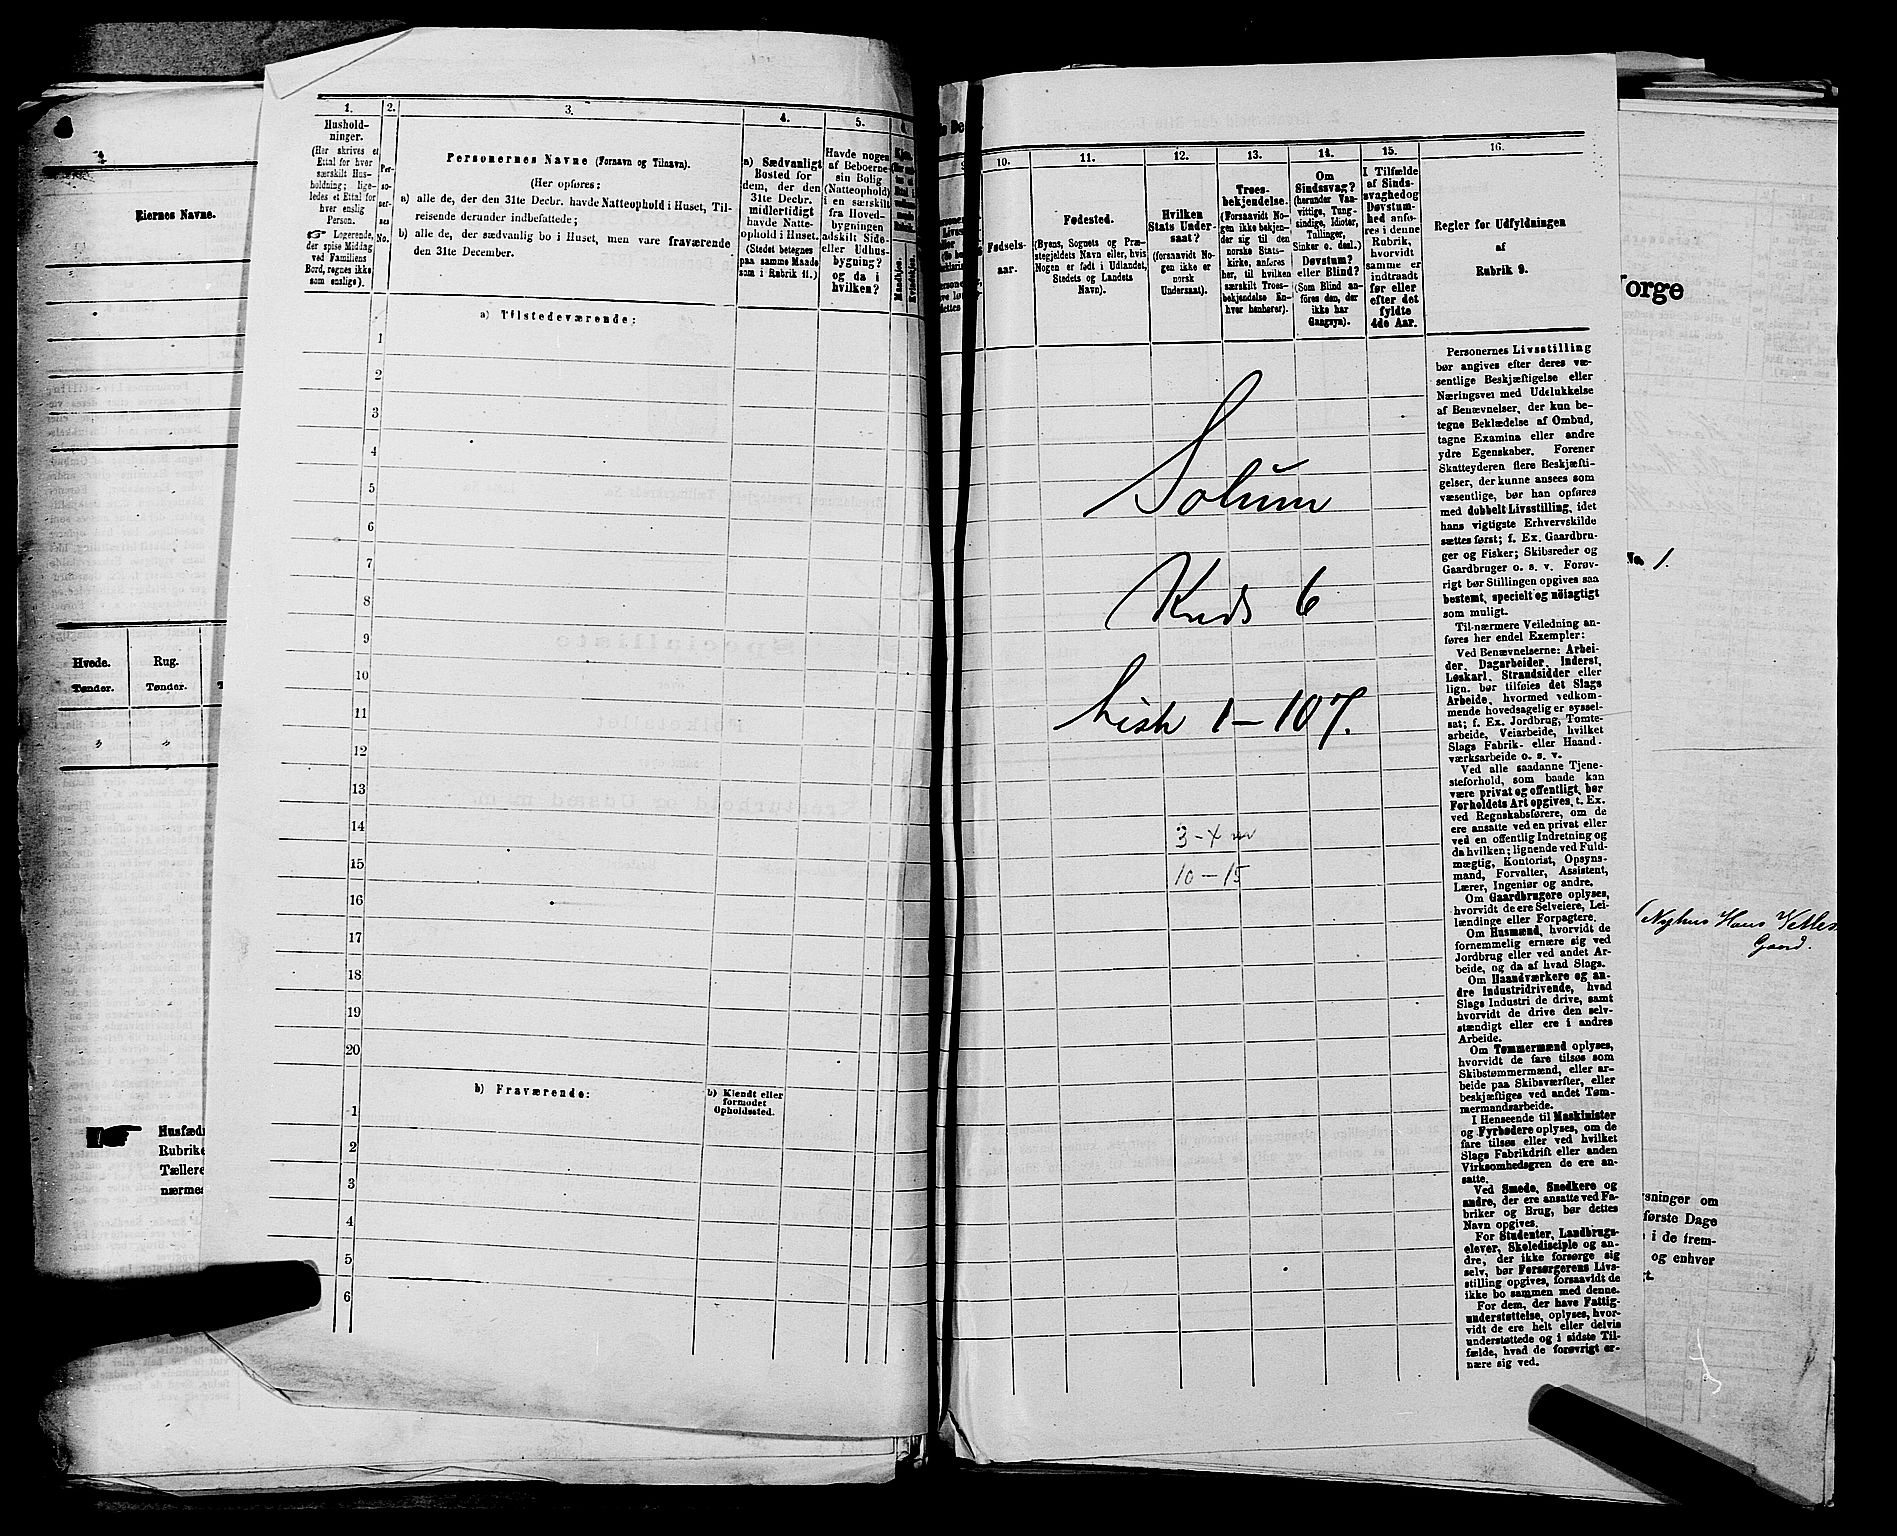 Eiernes Navne.
Hvede.
Tønder.
Rug.
Tønder.
Husfæd
Rubrike
Tællere
nærmes
1.
Hushold-
ninger.
(Her skrives et
Ettal for hver
særskilt Hus-
holdning; lige-
ledes et Ettal for
hver enslig
Person.
☞ Logerende,
der spise Middag
ved Familiens
Bord, regnes ikke
som enslige).
2.
Per-
so-
ner-
nes
No.
3.
Personernes Navne (Fornavn og Tilnavn).
(Her opføres:
a) alle de, der den 31te Decbr. havde Natteophold i Huset, Til-
reisende derunder indbefattede;
b) alle de, der sædvanlig bo i Huset, men vare fraværende
den 31te December.
4.
a) Sædvanligt
Bosted for
dem, der den
31te Decbr.
midlertidigt
havde Natte-
ophold i Huset.
(Stedet betegnes
paa samme Maade
som i Rubrik 11.)
5.
Havde nogen
af Beboerne
sin Bolig
(Natteophold)
i en særskilt
fra Hoved-
bygningen
adskilt Side-
eller Udhus-
bygning?
og da i
hvilken?
Mandkjøn.
Kvindekjøn.
a) Tilstedeværende:
1
2
3
4
5
6
7
8
9
10
11
12
13
14
15
16
17
18
19
20
b) Fraværende:
b) Kjendt eller
formodet
Opholdssted.
1
2
3
4
5
6
10.
Fødsels-
aar.
11.
Fødested.
(Byens, Sognets og Præ-
stegjeldets Navn eller, hvis
Nogen er født i Udlandet,
Stedets og Landets
Navn).
12.
Hvilken
Stats Under-
saat?
(forsaavidt No-
gen ikke er
norsk
Undersaat).
13.
Troes-
bekjendelse.
(Forsaavidt No-
gen ikke bekjen-
der sig til den
norske Stats-
kirke, anføres
her, til hvilken
særskilt Troes-
bekjendelse En-
hver henhører).
14.
Om
Sindssvag?
(herunder Van-
vittige, Tung-
sindige, Idioter,
Tullinger,
Sinker o. desl.)
Døvstum?
eller Blind?
(Som Blind an-
føres den, der
ikke har
Gangsyn).
15.
I Tilfælde
af Sinds-
svaghed og
Døvstum-
hed anfø-
res i denne
Rubrik,
hvorvidt
samme er
indtraadt
før eller
efter det
fyldte
4de Aar.
16.
Regler for Udfyldningen
af
Rubrik 9.
Solum
Kreds 6
Liste 1-107.
3-4
10-15
Personernes Livsstilling
bør angives efter deres væ-
sentlige Beskjæftigelse eller
Næringsvei med Udelukkelse
af Benævnelser, der kun be-
tegne Beklædelse af Ombud,
tagne Examina eller andre
ydre Egenskaber. Forener
Skatteyderen flere Beskjæfti-
gelser, der kunne ansees som
væsentlige, bør han opføres
med dobbelt Livsstilling, idet
hans vigtigste Erhvervskilde
sættes først; f. Ex. Gaardbru-
ger og Fisker; Skibsreder og
Gaardbruger o. s. v. Forøv-
rigt bør Stillingen opgives saa
bestemt, specielt og nøiagtigt
som muligt.
Til nærmere Veiledning an-
føres her endel Exempler:
Ved Benævnelserne: Arbei-
der, Dagarbeider, Inderst,
Løskarl, Strandsidder eller
lign. bør tilføies det Slags
Arbeide, hvormed vedkom-
mende hovedsagelig er syssel-
sat; f. Ex. Jordbrug, Tomte-
arbeide, Veiarbeide, hvilket
Slags Fabrik- eller Haand-
værksarbeide o. s. v.
Ved alle saadanne Tjene-
steforhold, som baade kan
være privat og offentligt, bør
Forholdets Art opgives, t. Ex.
ved Regnskabsførere, om de
ere ansatte ved en privat eller
ved en offentlig Indretning og
da hvilken; lignende ved Fuld-
mægtig, Kontorist, Opsyns-
mand, Forvalter, Assistent,
Lærer, Ingeniør og andre.
Om Gaardbrugere oplyses,
hvorvidt de ere Selveiere, Lei-
lændinge eller Forpagtere.
Om Husmænd, hvorvidt de
fornemmelig ernære sig ved
Jordbrug eller ved andet Ar-
beide, og da af hvad Slags.
Om Haandværkere og an-
dre Industridrivende, hvad
Slags Industri de drive, samt
hvorvidt de drive den selv-
stændigt eller ere i andres
Arbeide.
Om Tømmermænd oplyses,
hvorvidt de fare tilsøs som
Skibstømmermænd, eller ar-
beide paa Skibsværfter, eller
beskjæftiges ved andet Tøm-
mermandsarbeide.
I Henseende til Maskinister
og Fyrbødere oplyses, om de
fare tilsøs eller ved hvilket
Slags Fabrikdrift eller anden
Virksomhedsgren de ere an-
satte.
Ved Smede, Snedkere og
andre, der ere ansatte ved Fa-
briker og Brug, bør dettes
Navn opgives.
For Studenter, Landbrugs-
elever, Skoledisciple og an-
dre, der ikke forsørge sig
selv, bør Forsørgerens Livs-
stilling opgives, forsaavidt de
ikke bo sammen med denne.
For dem, der have Fattig-
understøttelse, oplyses, hvor-
vidt de ere helt eller delvis
understøttede og i sidste Til-
fælde, hvad de forøvrigt er-
nære sig ved.
Norge
No. 1.
Nyhus Hans
Gaard.
sninger om
første Dage
i de frem-
og enhver